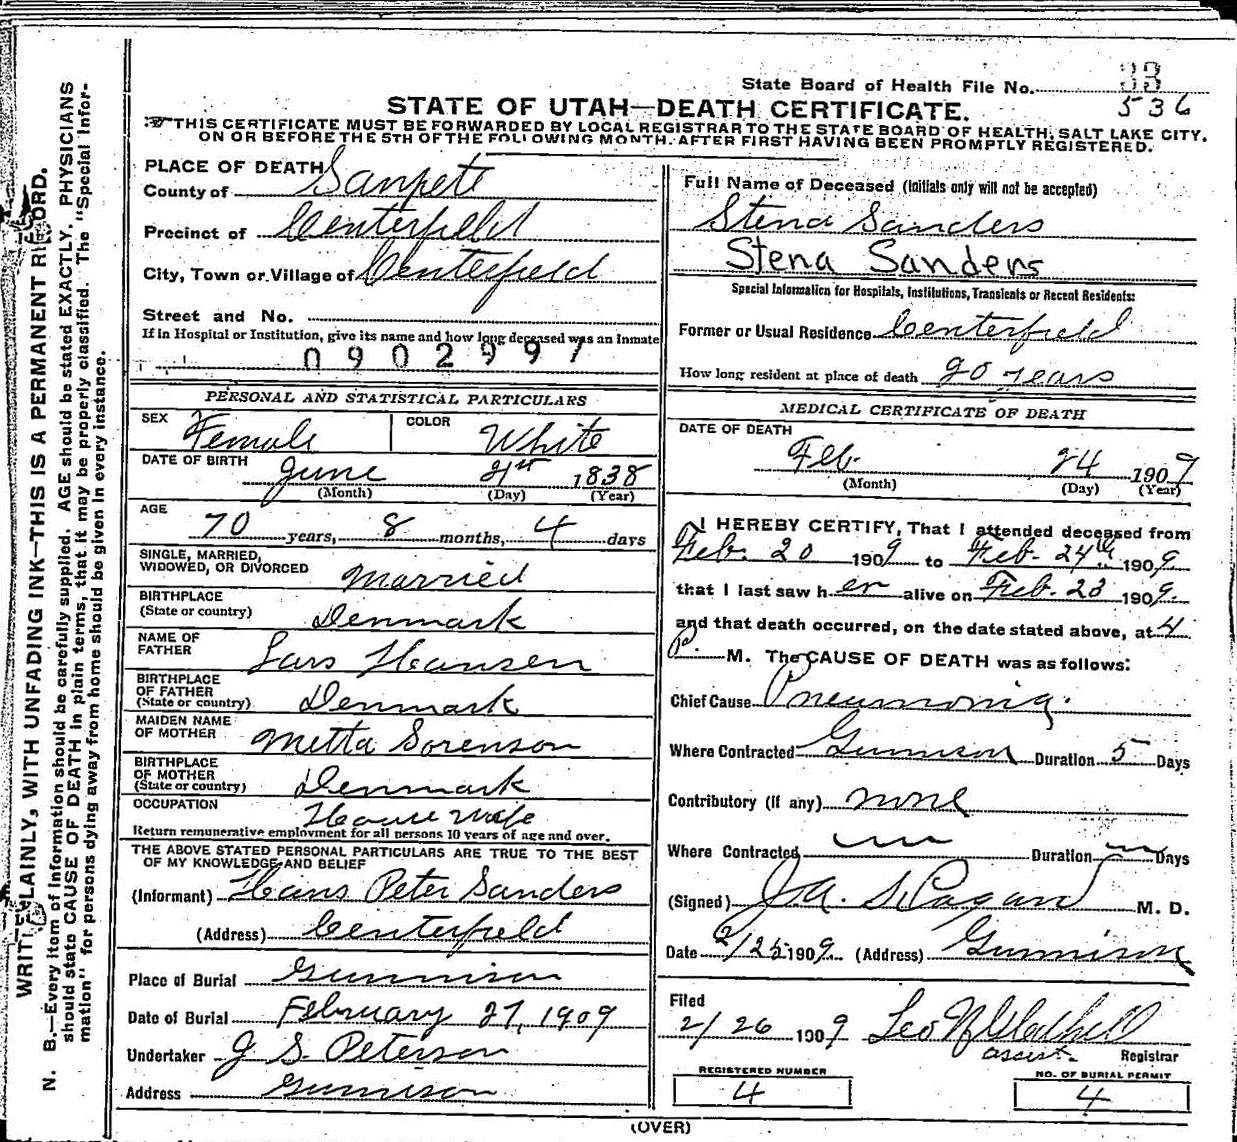 State Board of Health File No. 33
536
STATE OF UTAH—DEATH CERTIFICATE.
THIS CERTIFICATE MUST BE FORWARDED BY LOCAL REGISTRAR TO THE STATE BOARD OF HEALTH, SALT LAKE CITY,
ON OR BEFORE THE 5TH OF THE FOLLOWING MONTH, AFTER FIRST HAVING BEEN PROMPTLY REGISTERED.
WRITE PLAINLY, WITH UNFADING INK—THIS IS A PERMANENT RECORD.
N. B.—Every item of information should be carefully supplied. AGE should be stated EXACTLY. PHYSICIANS
should state CAUSE OF DEATH in plain terms, that it may be properly classified. The "Special Infor-
mation" for persons dying away from home should be given in every instance.
PLACE OF DEATH
County of Sanpete
Precinct of Centerfield
City, Town or Village of Centerfield
Street and No.
If in Hospital or Institution, give its name and how long deceased was an inmate
0902997
PERSONAL AND STATISTICAL PARTICULARS
SEX Female COLOR White
DATE OF BIRTH June 21st 1838
(Month) (Day) (Year)
AGE
70 years, 8 months, 4 days
SINGLE, MARRIED,
WIDOWED, OR DIVORCED Married
BIRTHPLACE
(State or country) Denmark
NAME OF
FATHER Lars Hansen
BIRTHPLACE
OF FATHER
(State or country) Denmark
MAIDEN NAME
OF MOTHER Metta Sorenson
BIRTHPLACE
OF MOTHER
(State or country) Denmark
OCCUPATION House wife
Return remunerative employment for all persons 10 years of age and over.
THE ABOVE STATED PERSONAL PARTICULARS ARE TRUE TO THE BEST
OF MY KNOWLEDGE AND BELIEF
(Informant) Hans Peter Sanders
(Address) Centerfield
Place of Burial Gunnison
Date of Burial February 27, 1909
Undertaker J S. Peterson
Address Gunnison
Full Name of Deceased (Initials only will not be accepted)
Stena Sanders
Stena Sanders
Special Information for Hospitals, Institutions, Transients or Recent Residents:
Former or Usual Residence Centerfield
How long resident at place of death 20 years
MEDICAL CERTIFICATE OF DEATH
DATE OF DEATH
Feb. 24 1909
(Month) (Day) (Year)
I HEREBY CERTIFY, That I attended deceased from
Feb. 20 1909 to Feb. 24th 1909.
that I last saw her alive on Feb. 23 1909.
and that death occurred, on the date stated above, at 4
P. M. The CAUSE OF DEATH was as follows:
Chief Cause Pneumonia.
Where Contracted Gunnison Duration 5 Days
Contributory (if any) none
Where Contracted Duration Days
(Signed) M. D.
Date 2/25 1909. (Address) Gunnison
Filed
2/26 1909 Leo
assist. Registrar
REGISTERED NUMBER
4
NO. OF BURIAL PERMIT
4
(OVER)